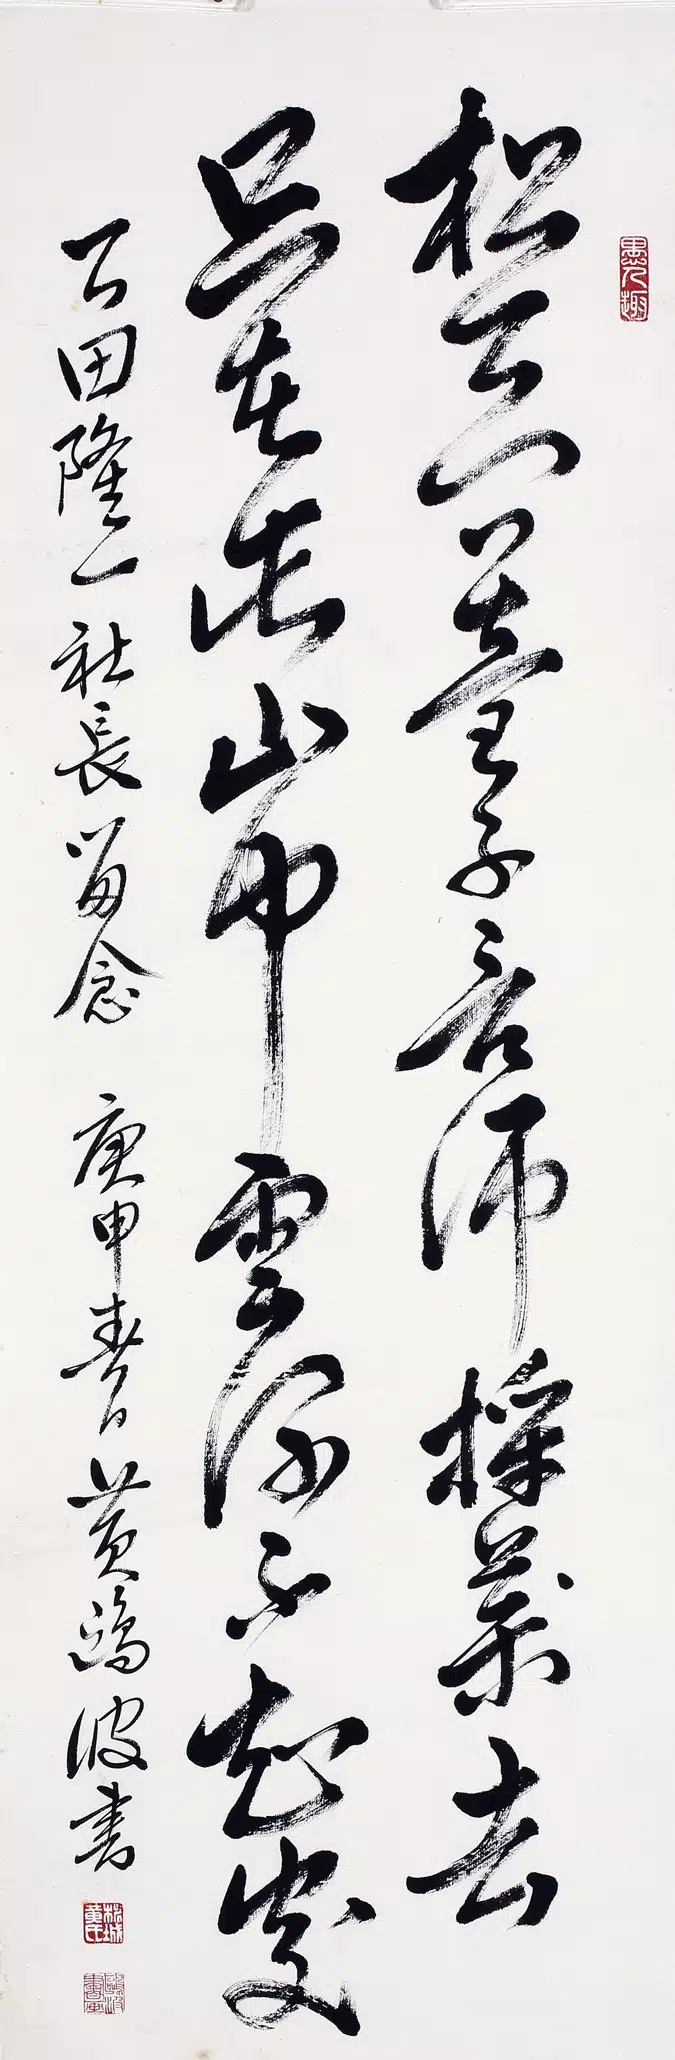 松下問童子言師採藥去
只在此山中雲深不知處
石田隆一社長留念 庚申春日 黃鴻波書